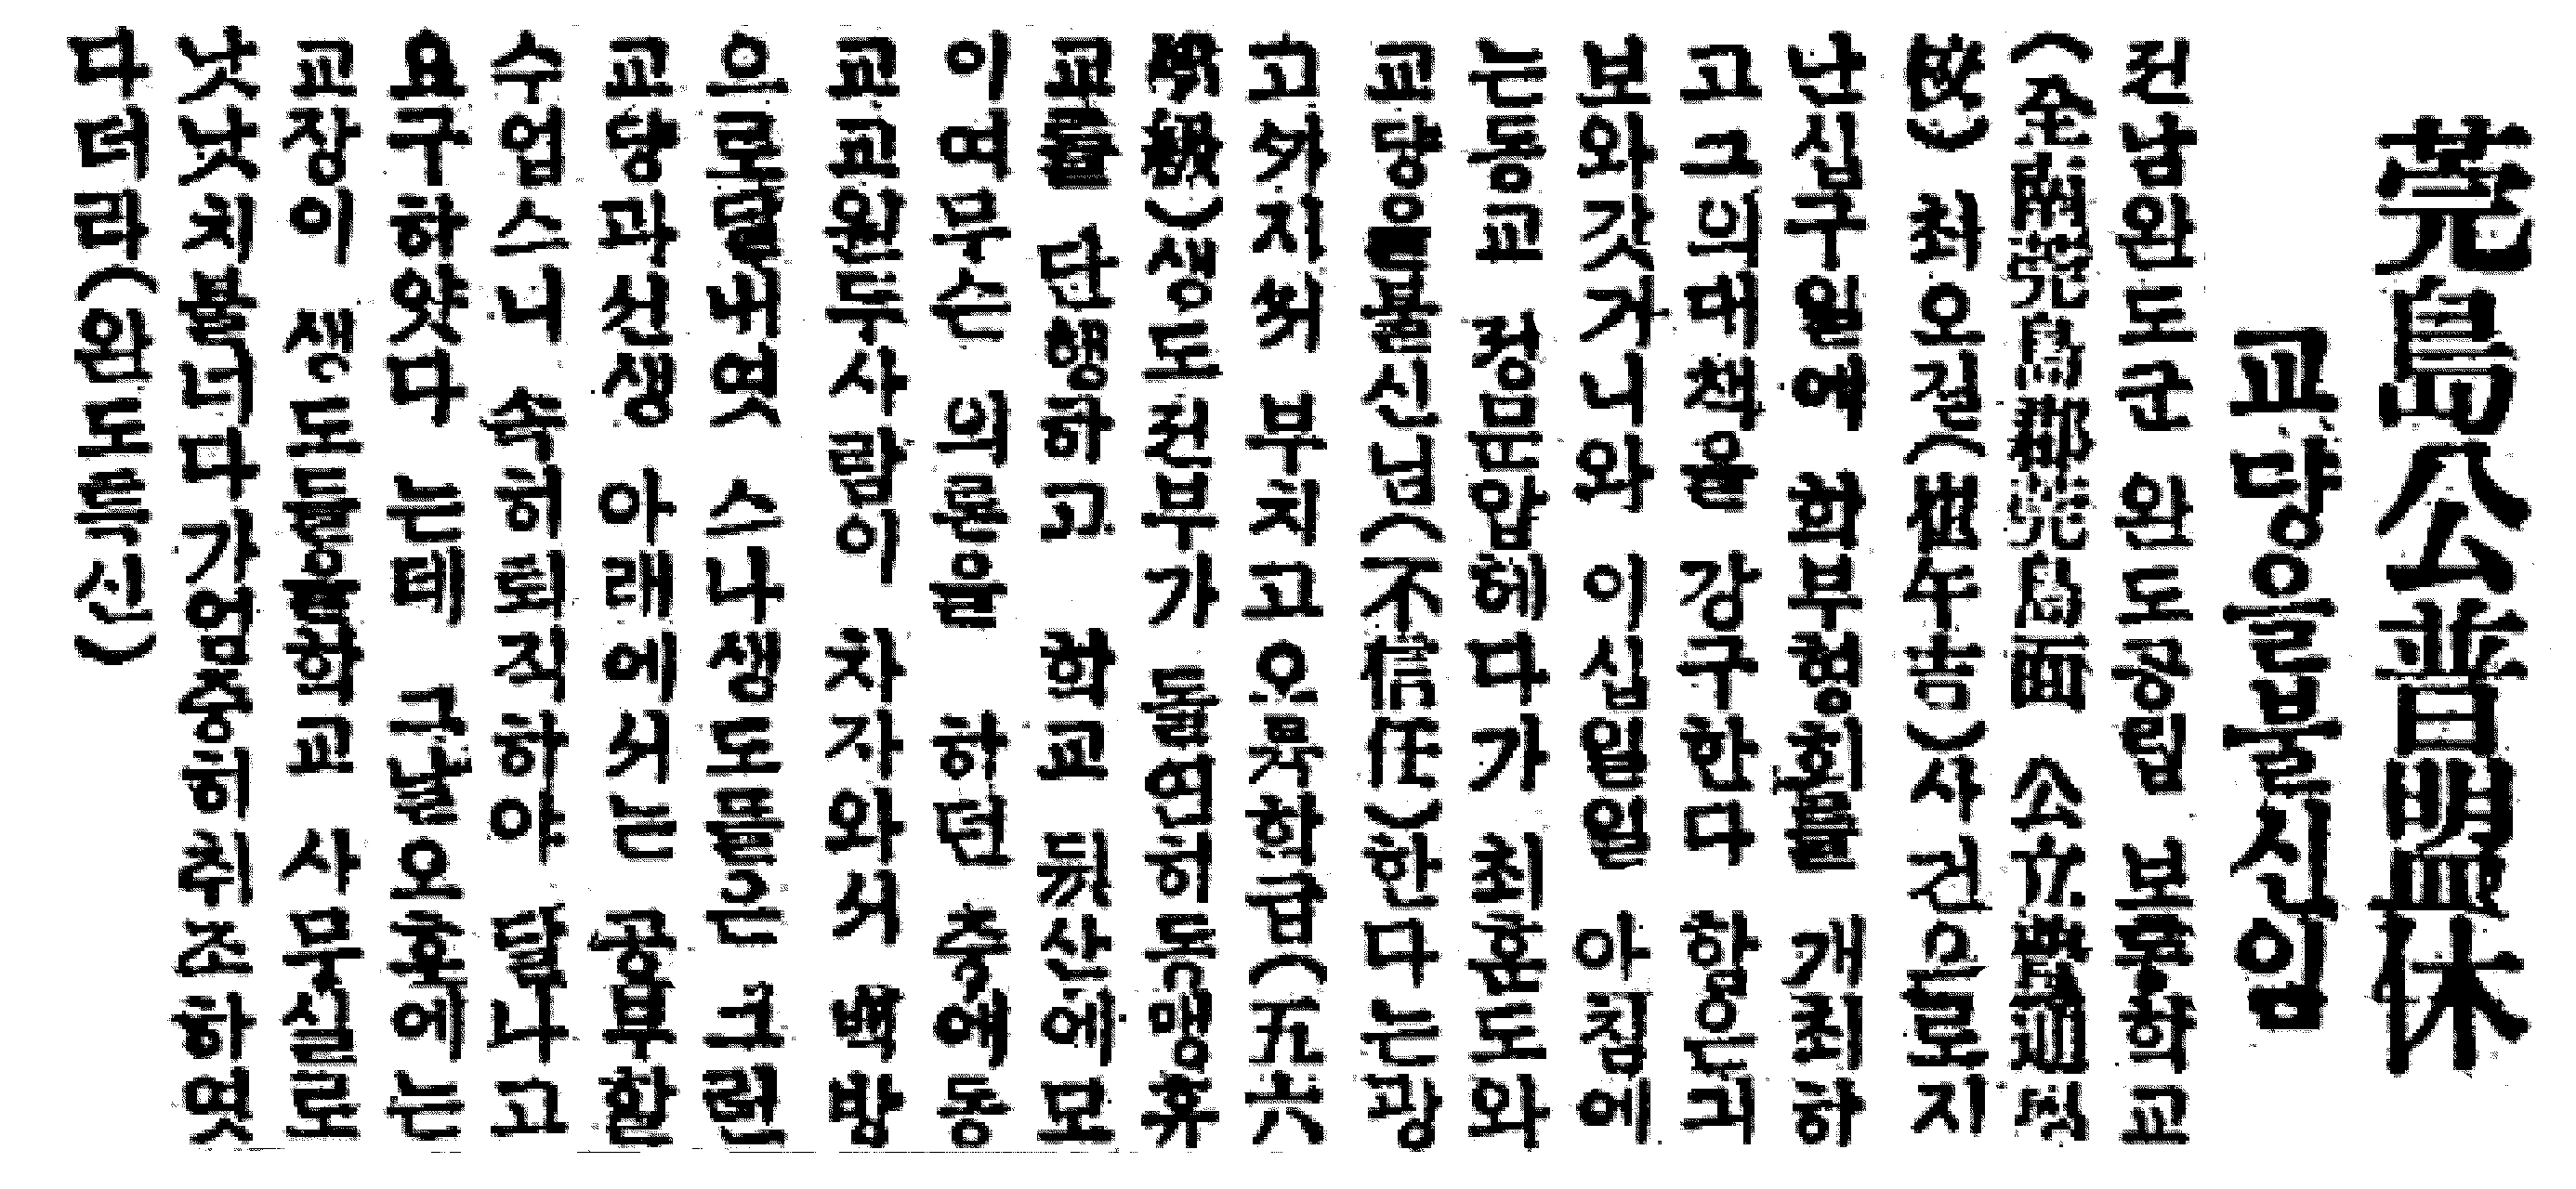 莞島公普盟休
교당을불신임
전남완도군 완도공립 보통학교
(全南莞島郡莞島面 公立普通學
校) 최오길(崔午吉)사건으로지
난십구일에 학부형회를 개최하
고그의대책을 강구한다 함은긔
보와갓거니와 이십일일 아침에
는동교 정문압헤다가 최훈도와
교당을불신님(不信任)한다는광
고까지써 부치고오륙학급(五六
學級)생도전부가 돌연히동맹휴
교를 단행하고 학교 뒷산에모
이여무슨 의론을 하던 중에동
교교원두사람이 차자와서 백방
으로달내엿 스나생도들은 그런
교당과선생 아래에서는 공부할
수업스니 속히퇴직하야 달나고
요구하얏다 는데 그날오후에는
교장이 생도들을학교 사무실로
낫낫치불너다가엄중히취조하엿
다더라(완도통신)